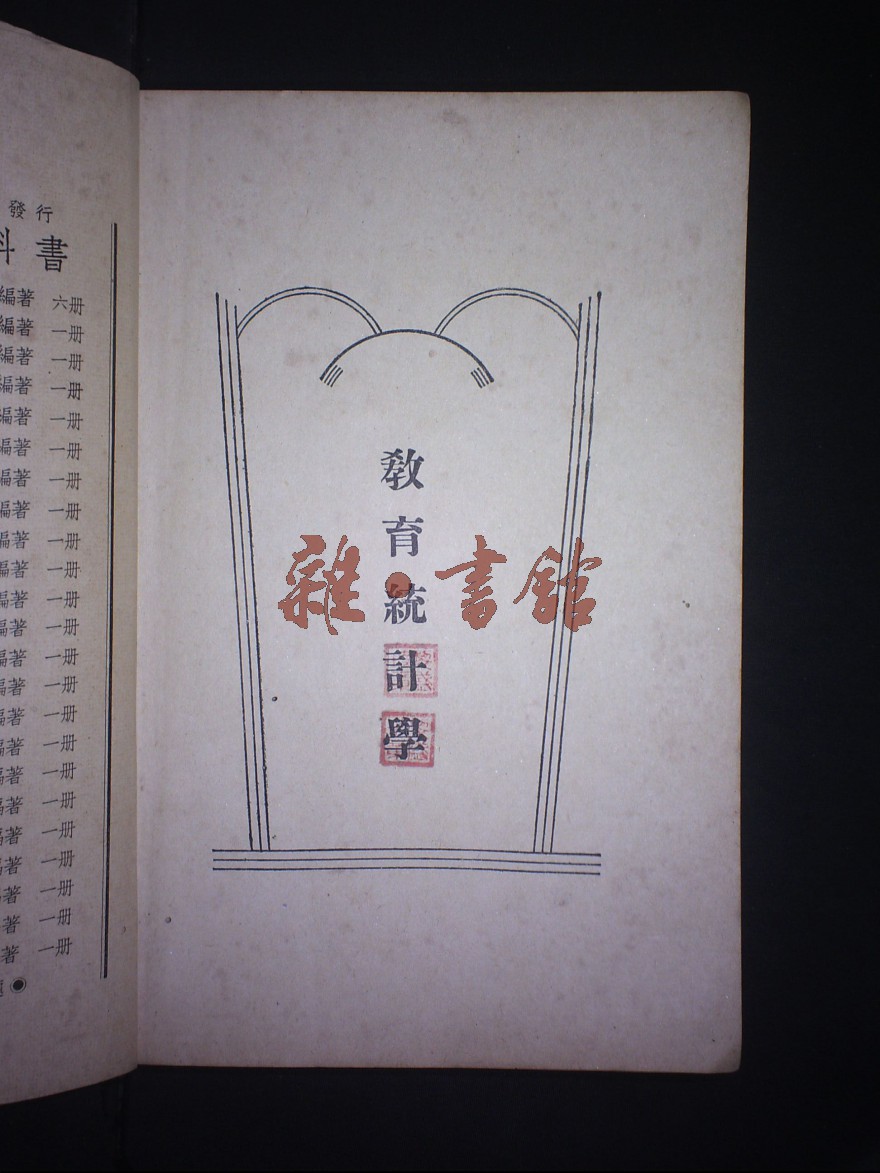 發行
科書
編著 六册
編著 一册
編著 一册
編著 一册
編著 一册
編著 一册
編著 一册
編著 一册
編著 一册
編著 一册
編著 一册
編著 一册
編著 一册
編著 一册
編著 一册
編著 一册
編著 一册
編著 一册
編著 一册
編著 一册
編著 一册
著 一册
著 一册
教育統計學
雜·書館